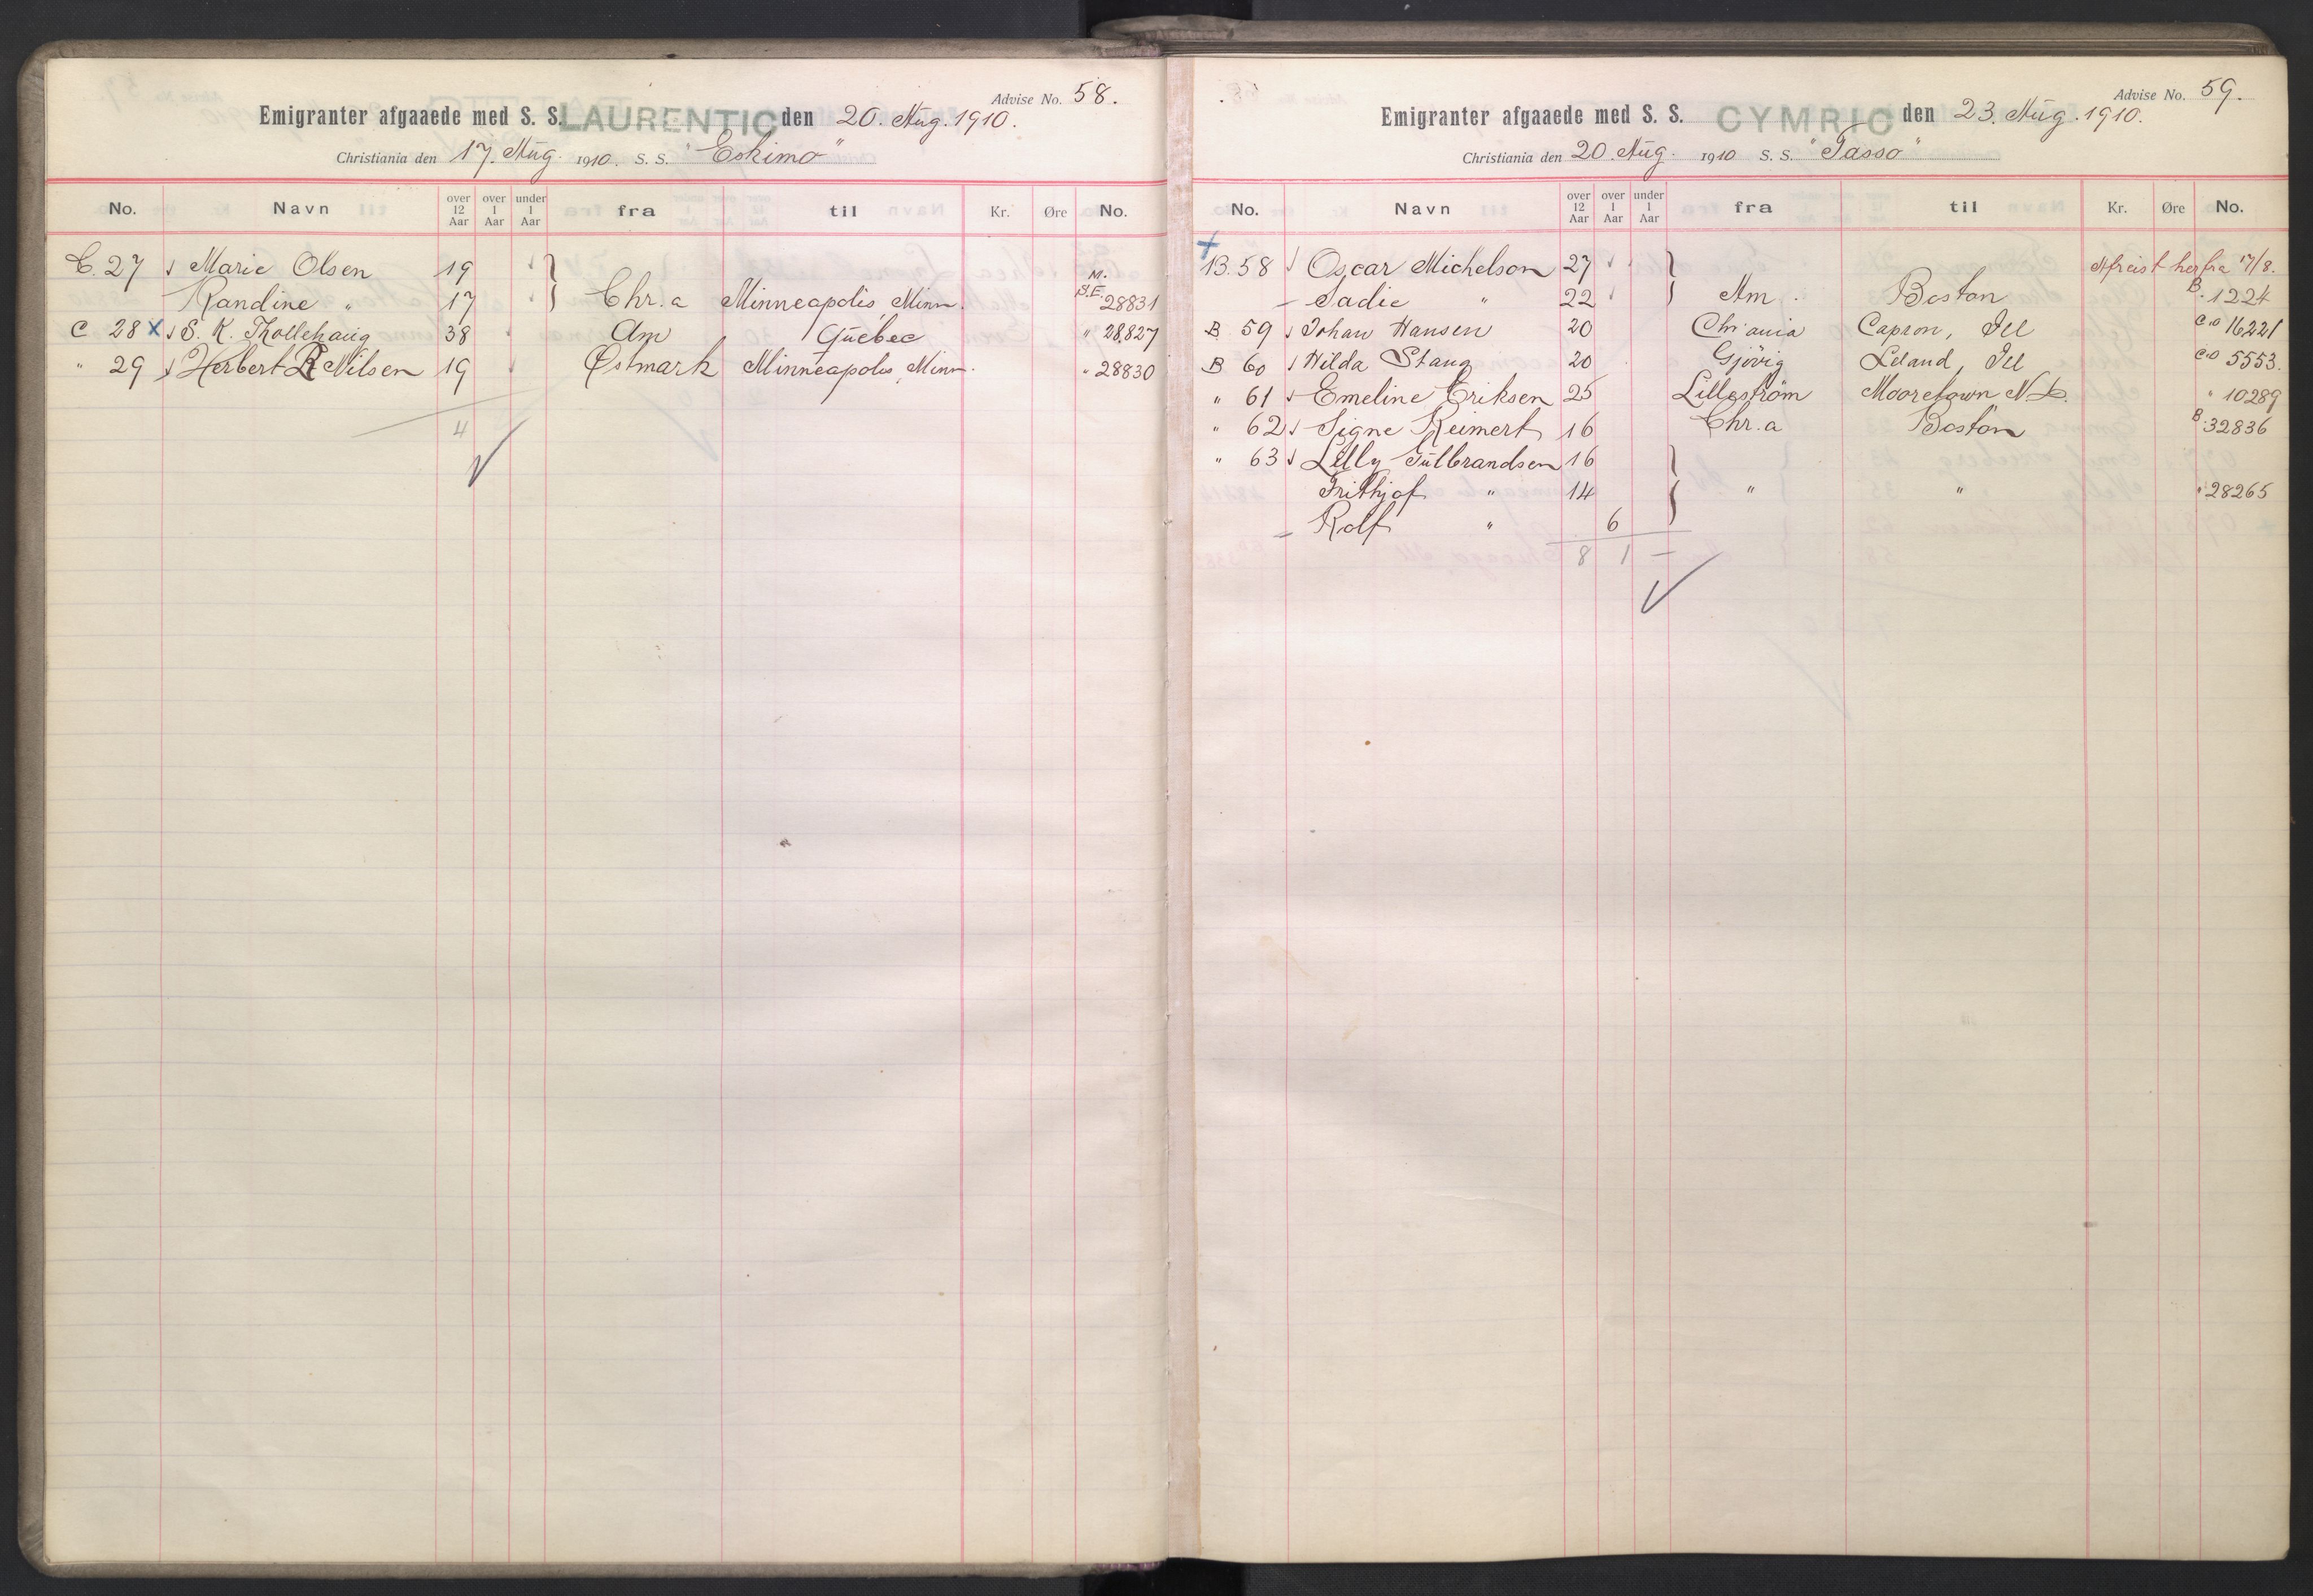 Advise No. 58.
Emigranter afgaaede med S. S. LAURENTIC den 20. Aug. 1910.
Christiania den 17. Aug. 1910. S. S. "Eskimo"
No. Navn over 12 Aar over 1 Aar under 1 Aar fra til Kr. Øre No.
C. 27 Marie Olsen 19
Randine " 17 } Chr.a Minneapolis, Minn. M. S.E. 28831
C 28 x S. K. Thollehaug 38 Am Quebec " 28827
" 29 Herbert R Nilsen 19 Østmark Minneapolis, Minn. " 28830
4
Advise No. 59.
Emigranter afgaaede med S. S. CYMRIC den 23. Aug. 1910.
Christiania den 20. Aug. 1910 S. S. "Tasso"
No. Navn over 12 Aar over 1 Aar under 1 Aar fra til Kr. Øre No.
+
B. 58 Oscar Michelson 27 } Afreist herfra 17/8.
– Sadie " 22 Am. Boston B. 1224
B 59 Johan Hansen 20 Chr'ania Capron, Ill 16221
B 60 Hilda Stang 20 Gjøvig Leland, Ill 5553.
" 61 Emeline Eriksen 25 Lillestrøm Mooretown N.D. " 10289
" 62 Signe Reimert 16 Chr.a Boston B. 32836
" 63 Lilly Gulbrandsen 16 }
Frithjof " 14 " " " 28265
– Rolf " 6
8 1 –